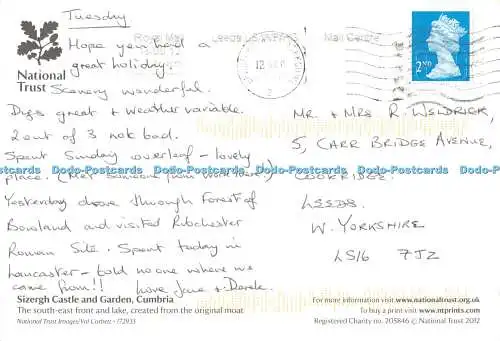 Tuesday
Hope you had a
great holiday.
Scenery wonderful.
Digs great + weather variable.
2 out of 3 not bad.
Spent Sunday overleaf - lovely
place. (Met someone from work there!)
Yesterday drove through Forest of
Bowland and visited Ribchester
Roman Site. Spent today in
Lancaster - told no one where we
came from!! Love Jane + Derek.
National
Trust
Royal Mail
Leeds
Mail Centre
2ND
Mr + Mrs R. Weldrick,
5, Carr Bridge Avenue,
Cookridge,
Leeds.
W. Yorkshire
LS16 7JZ
Dodo-Postcards Dodo-Postcards Dodo-Postcards Dodo-Postcards Dodo-Postcards
Sizergh Castle and Garden, Cumbria
The south-east front and lake, created from the original moat
National Trust Images/Val Corbett · 172933
For more information visit www.nationaltrust.org.uk
To buy a print visit www.ntprints.com
Registered Charity no. 205846 © National Trust 2012